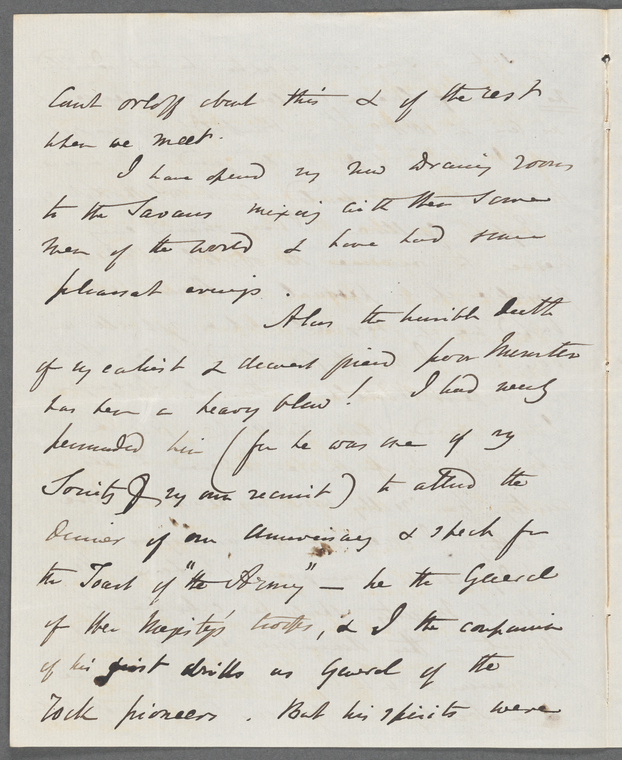 Count Orloff about this & of the rest
when we meet.
I have opened my new Drawing rooms
to the Savans mixing with them some
men of the world & have had some
pleasant evenings.
Alas the horrible death
of my earliest & dearest friend poor
has been a heavy blow! I had nearly
persuaded him (for he was one of my
Society & my own recruit) to attend the
Dinner of our Anniversary & speak for
the Toast of "the Army" — he the General
of Her Majesty's troops, & I the companion
of his first drills as General of the
Rock pioneers. But his spirits were